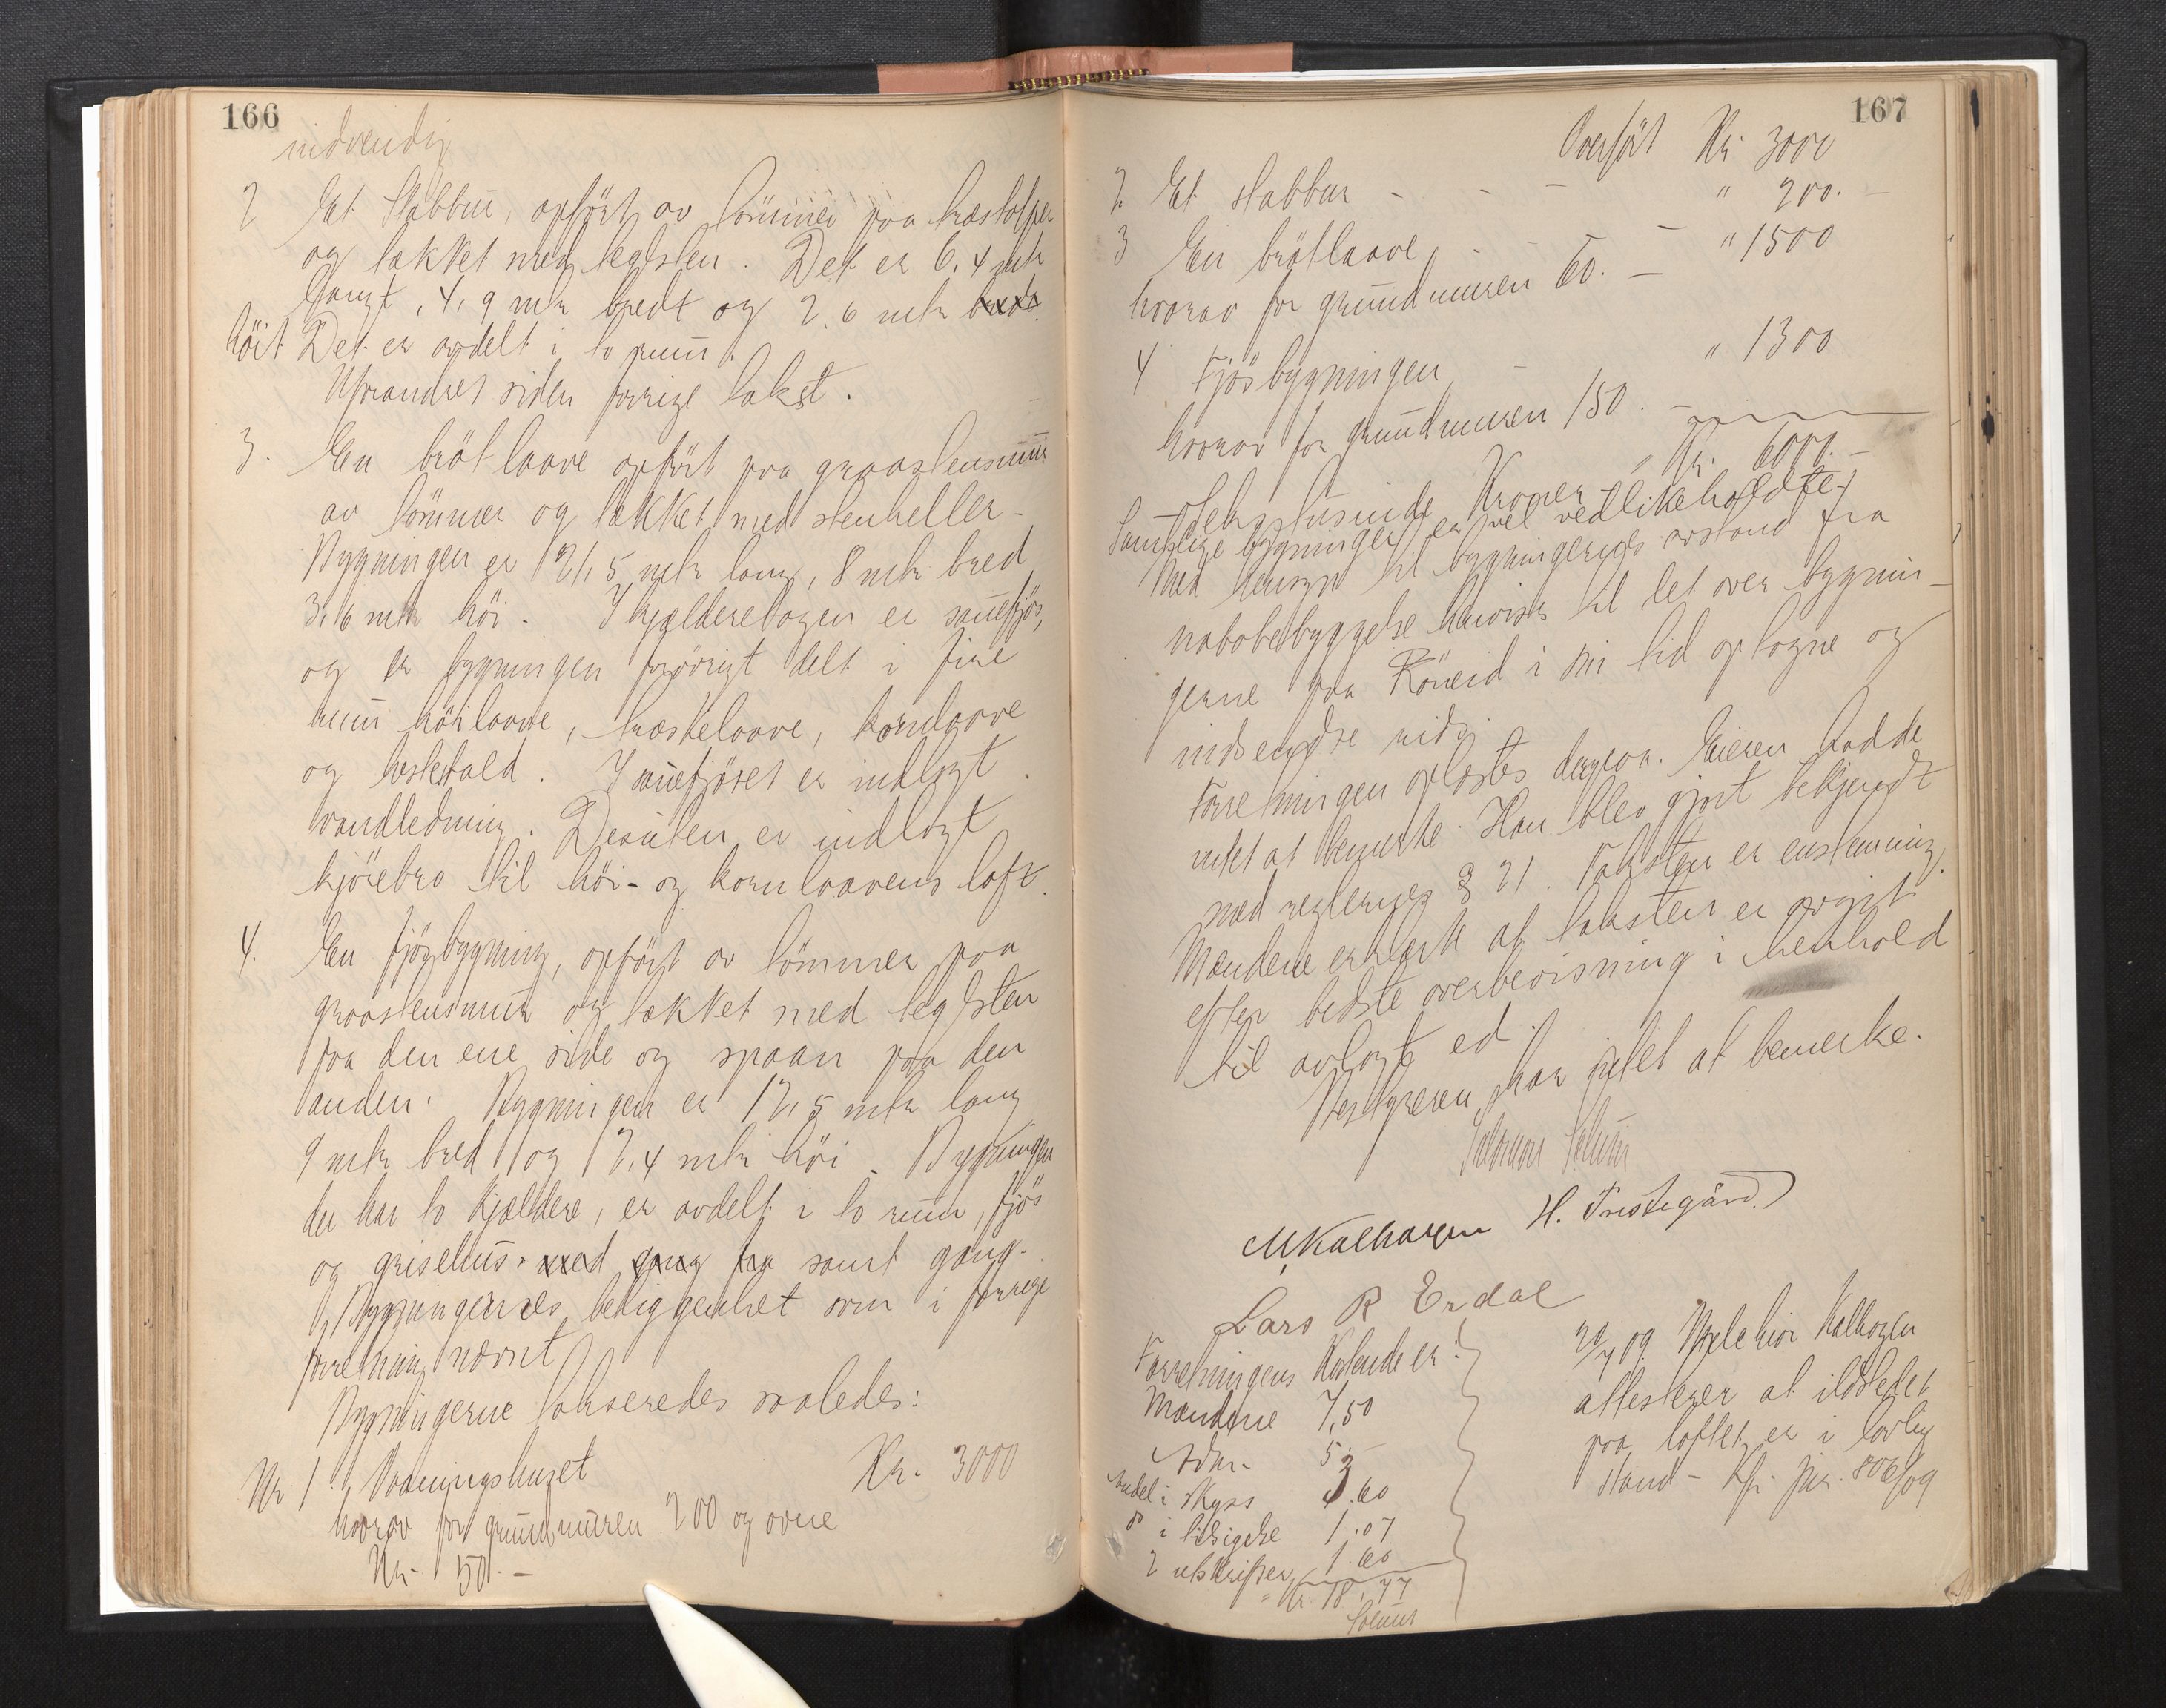 166
indvendig
2 Et Stabbur, opført av tømmer paa træstolper
og tækket med teglsten. Det er 6.4 mtr
langt, 4,9 mtr bredt og 2.6 mtr
høit Det er avdelt i to rum.
Uforandret siden forrige takst.
3. En brøtlaave opført paa graastensmur
av tømmer og tækket med stenheller.
Bygningen er 21,5 mtr lang, 8 mtr bred
3,6 mtr høi. I kjælderetagen er sauefjøs,
og er bygningen forøvrigt delt i fire
rum høilaave, træskelaave, kornlaave
og hestestald. I sauefjøset er indlagt
vandledning. Desuten er indlagt
kjørebro til høi- og kornlaavens loft.
4. En fjøsbygning, opført av tømmer paa
graastensmur og tækket med teglsten
paa den ene side og spaan paa den
anden. Bygningen er 12,5 mtr lang
9 mtr bred og 2,4 mtr høi. Bygningen
der har to kjældere, er avdelt i to rum, fjøs
og grisehus. med gang fra samt gang.
Bygningernes beliggenhet som i forrige
forretning nævnt
Bygningerne takseredes saaledes:
Nr 1 Vaaningshuset Kr. 3000
hvorav for grundmuren 200 og ovne
Kr. 50.-
167
Overført Kr 3000
2. Et stabbur - - - " 200.-
3 En brøtlaave - - - " 1500
hvorav for grundmuren 60. -
4 Fjøsbygningen - " 1300
hvorav for grundmuren 150. -
Kr. 6000.-
Sekstusinde Kroner
Samtlige bygninger er vel vedlikeholdte.
Med hensyn til bygningernes avstand fra
nabobebyggelse henvises til det over bygnin-
gerne paa Röneid i sin tid optagne og
indsendte rids
Forretningen oplæstes derpaa. Eieren hadde
intet at bemerke. Han blev gjort bekjendt
med reglernes § 21. Taksten er enstemmig.
Mændene erklærte at taksten er avgit
efter bedste overbevisning i henhold
til avlagt ed.
Bestyreren har intet at bemerke.
H. Tristegård.
Lars R Erdal
Forretningens Kostende er:
Mændene 7,50
Adm. 5.-
andel i skyss
do i tilsigelse 1.07
2 utskrifter 1.60
Kr. 18.77
20/7 09 Melchior Kalhagen
attesterer at ildstedet
paa loftet er i lovlig
stand - Kfr. jnr. 806/09